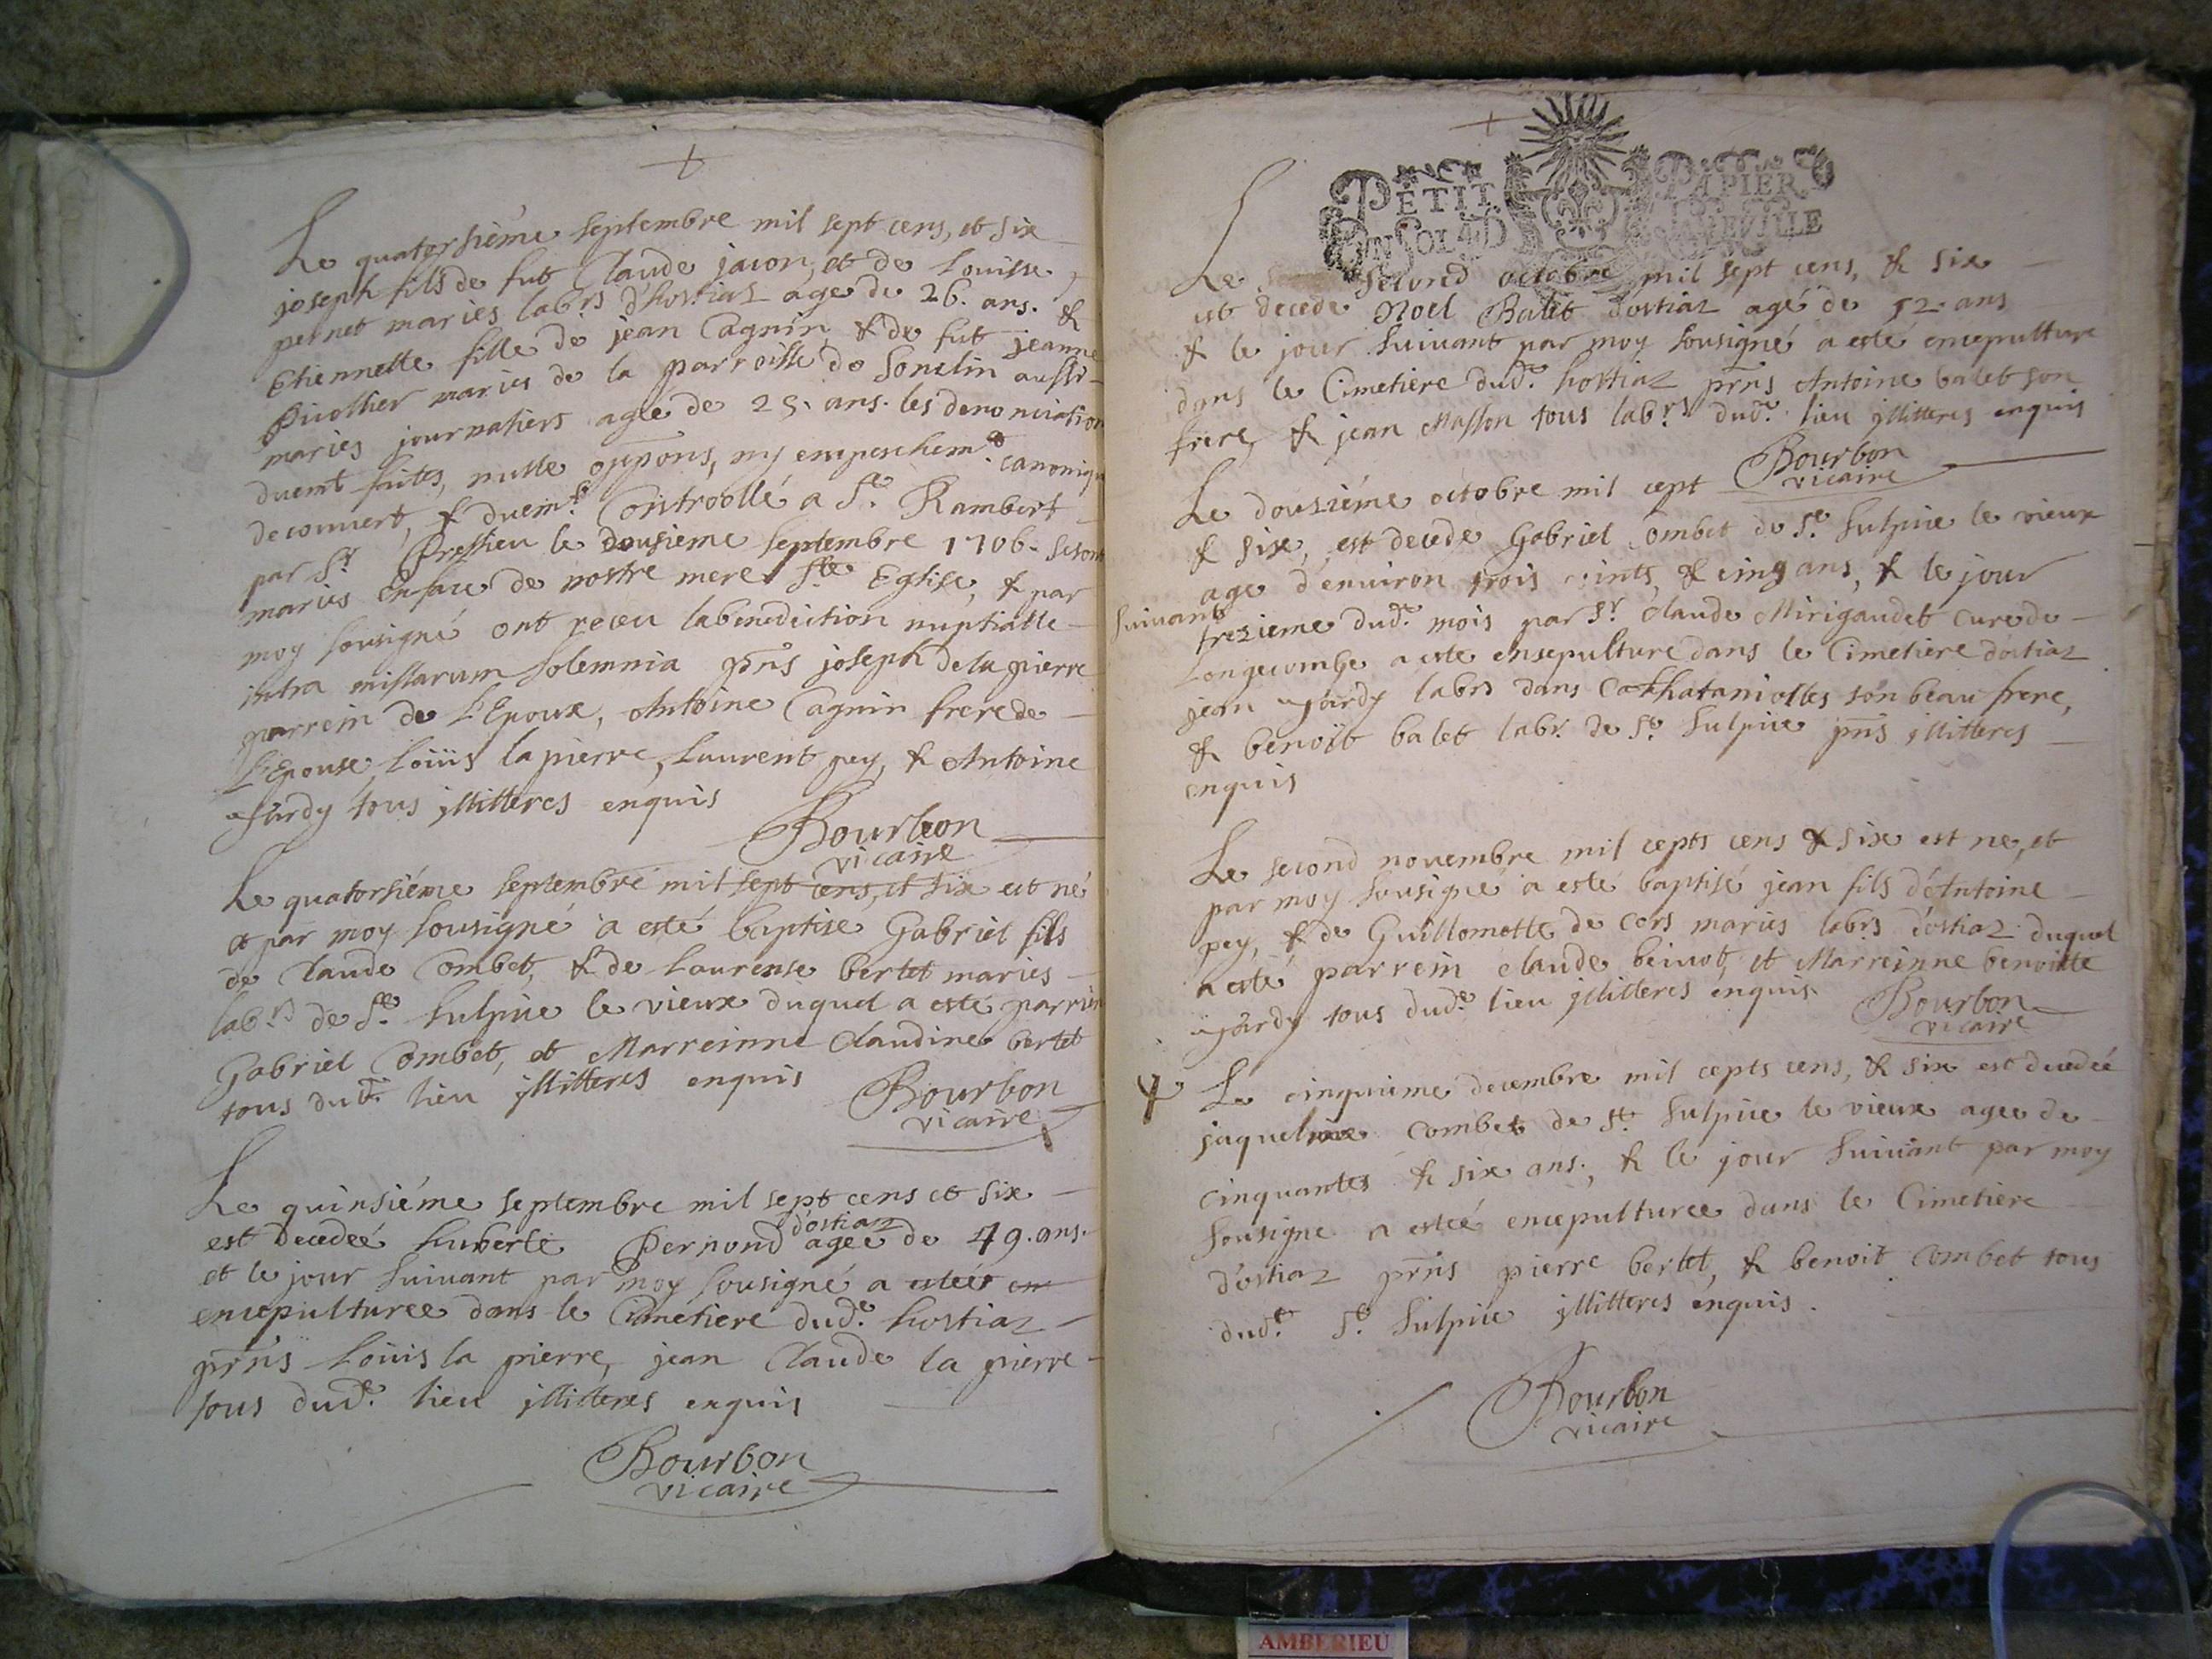 Le quatorsiéme septembre mil sept cens, et six
joseph fils de fut Claude jacon, et de Louisse
pernet mariés labrs d'hostiaz agé de 26. ans. &
Etiennette fille de jean Cagnin, & de fut jeanne
mariés de la parroisse de Soncelin aussi
mariés journaliers agée de 25. ans. les denonciation
duemt faites, nulle oppons, ny empeschemt. canoniq
decouvert, & duemt. Controollé a St. Rambert
par Sr. Pressieu le dousieme septembre 1706. se sont
mariés en face de nostre mere Ste Eglise, & par
moy sousigné ont receu la benediction nuptialle
intra missarum solemnia prns joseph de la pierre
parrein de L'Epoux, Antoine Cagnin frere de
L'Epouse, Loüis la pierre, Laurent pey, & Antoine
jardy tous jllitteres enquis
Bourbon
vicaire
Le quatorsiéme septembre mil sept cens, et six est né
et par moy sousigné a esté baptisé Gabriel fils
de Claude Combet, & de Laurense bertet mariés
labrs de St. Sulpice le vieux duquel a esté parrein
Gabriel Combet, et Marreinne Claudine bertet
tous dudt. lieu jllitteres enquis
Bourbon
vicaire
Le quinsiéme septembre mil sept cens et six
est decedeé huberte Pernond agée de 49. ans.
d'ostiaz
et le jour suivant par moy sousigné a esteé en
encepulturee dans le Cimetiere dude. hostiaz
prns Loüis la pierre, jean Claude la pierre
tous dude. lieu jllitteres enquis
Bourbon
vicaire
PETIT PAPIER
UN SOL 4 D LA FEVILLE
Le second octobre mil sept cens, & six
est decede Noel Balet d'ostiaz agé de 52. ans
& le jour suivant par moy sousigné a esté encepulture
dans le Cimetiere dude. hostiaz prns Antoine balet son
frere, & jean Masson tous labrs dude. lieu jllitteres enquis
Bourbon
vicaire
Le dousiéme octobre mil cept
& six, est decede Gabriel Combet de St. Sulpice le vieux
age d'environ trois vints, & cinq ans, & le jour
suivant tresieme dude. mois par Sr. Claude Mirigaudet cure de
Longecombe a este ensepulture dans le Cimetiere d'ostiaz
jean jardy labrs dans son beau frere,
& benoît balet labr. de St. Sulpice prns jllitteres
enquis
Le second novembre mil cepts cens & six est ne, et
par moy sousigné a esté baptisé jean fils d'Antoine
pey, & de Guillomette de cors mariés labrs d'ostiaz duquel
a esté parrein claude beinot, et Marreinne benoitte
jardy tous dude. lieu jllitteres enquis.
Bourbon
vicaire
Le cinquiéme decembre mil cepts cens, & six est decedeé
jaquelmie Combet de St. Sulpice le vieux agee de
cinquantes & six ans. & le jour suivant par moy
sousigne a esteé encepulturee dans le Cimetiere
d'ostiaz prns pierre bertet, & benoit Combet tous
dude. St. Sulpice jllitteres enquis.
Bourbon
vicaire
AMBERIEU